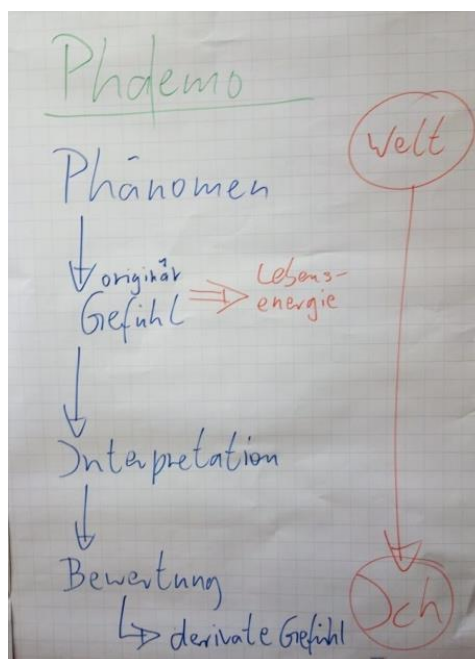 Phdemo
Welt
Phänomen
originär
Gefühl
Lebens-
energie
Interpretation
Bewertung
Ich
derivate Gefühl